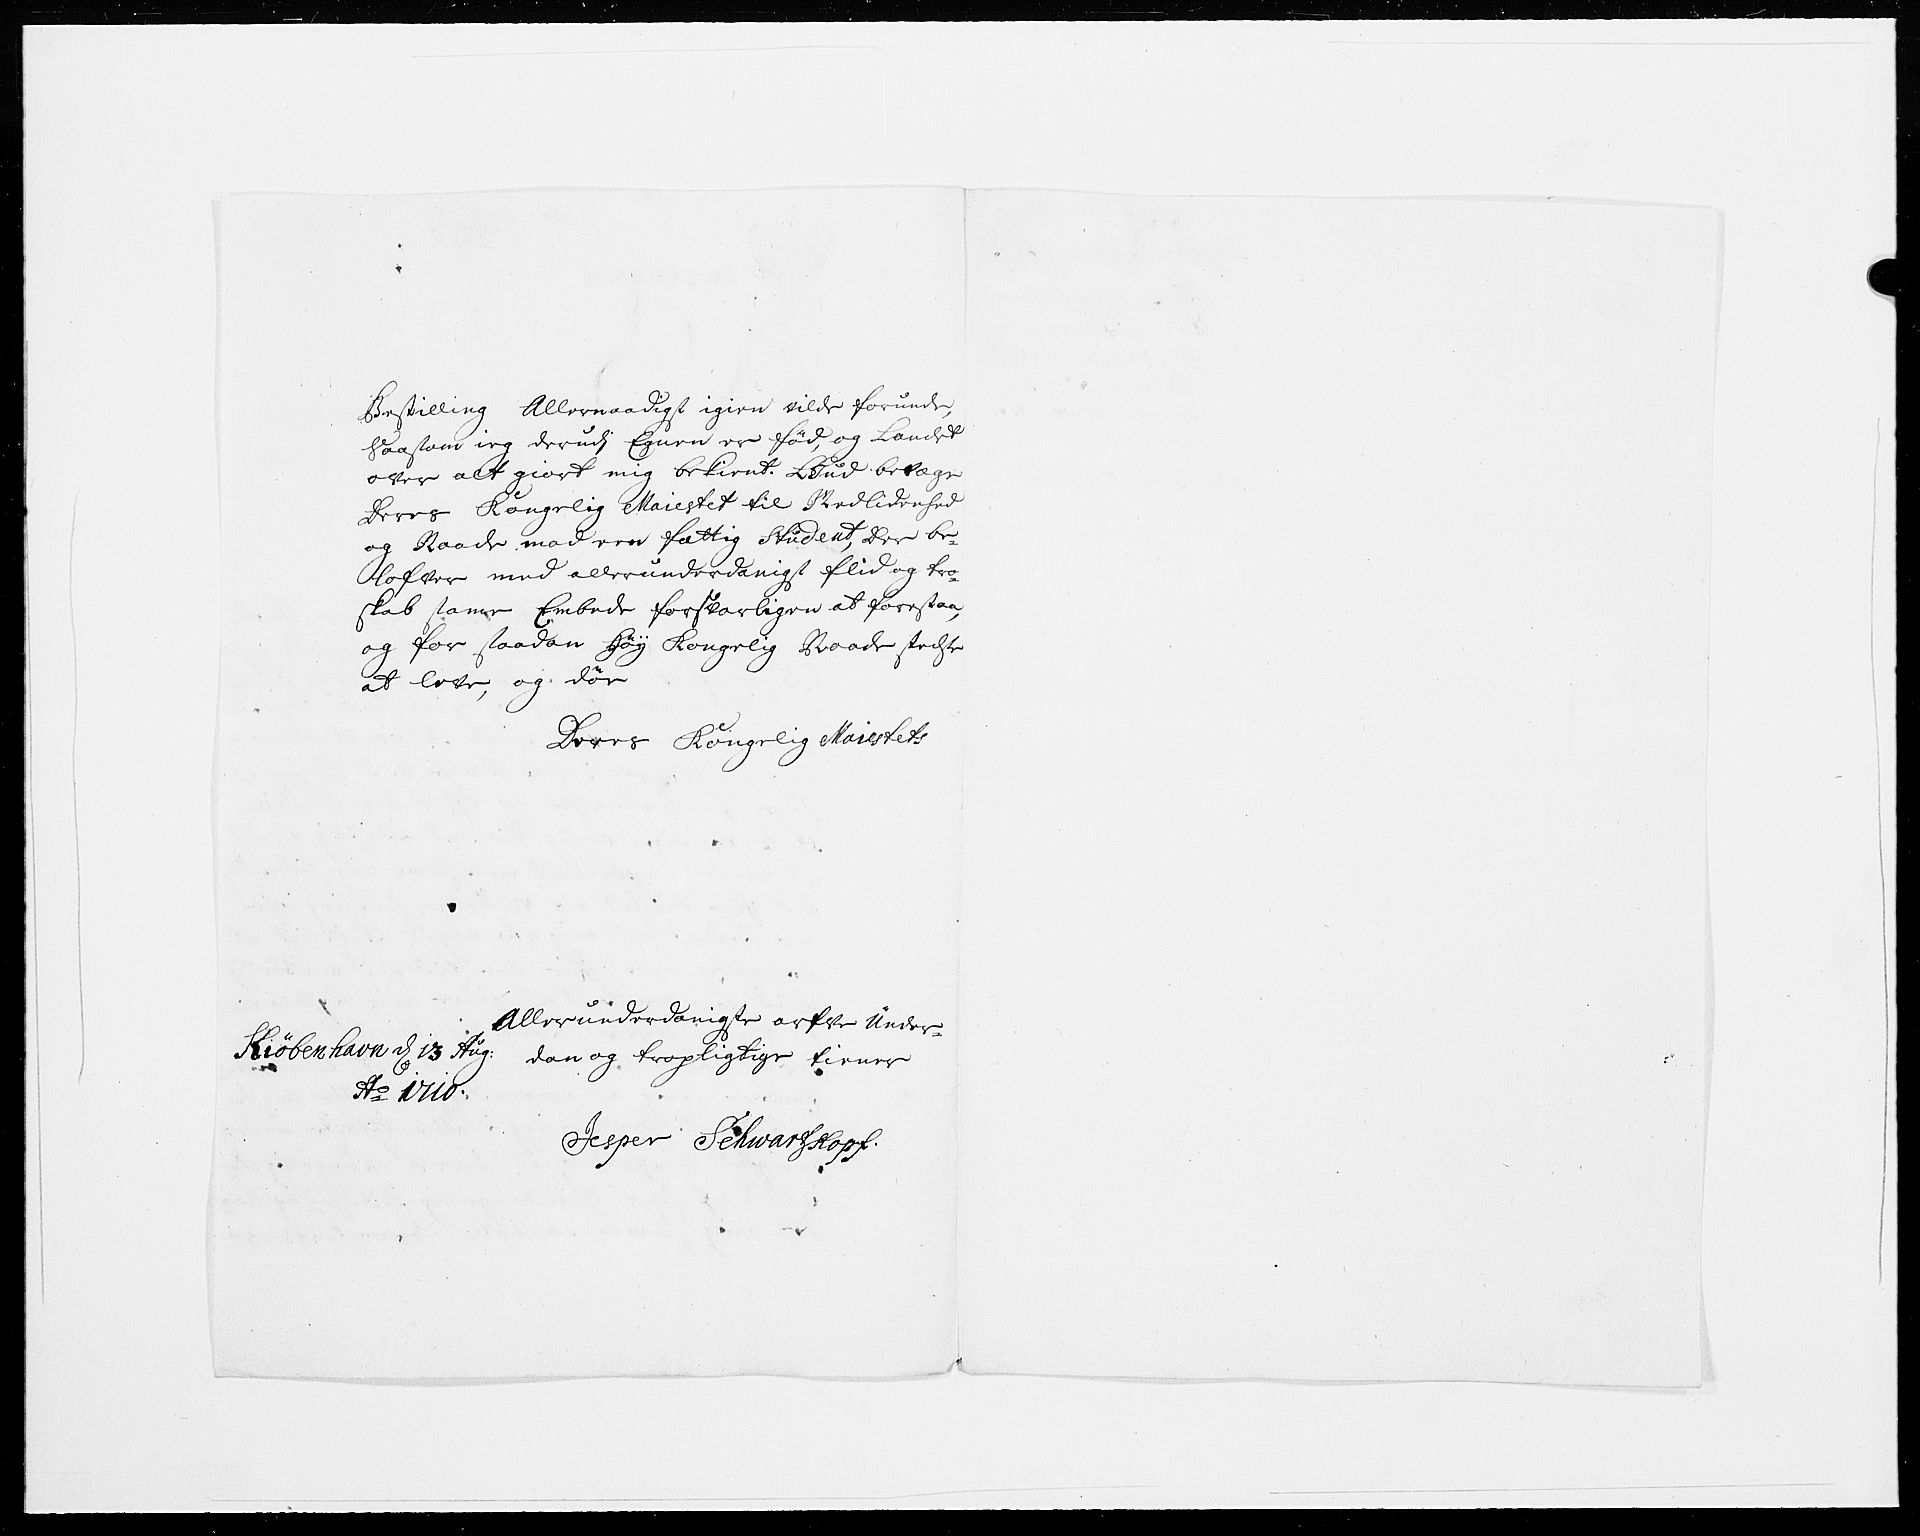 Bestilling Allernaadigst igien vilde forunde,
saasom ieg derudj Egnen er föd, og Landet
over alt giort mig bekient. Gud bevæge
Deres Kongelig Maiestet til Medlidenhed
og Naade mod een fattig Student, Der be-
lofver med allerunderdanigst flid og tro-
skab samme Embede forsvarligen at forestaa,
og for saadan Höÿ Kongelig Naade stedse
at leve, og döe
Deres Kongelig Maiestets
Allerunderdanigste arfve Under-
dan og tropligtige tiener
Kiöbenhavn d 13 Aug:
Ao 1710.
Jesper Schwartzkopf.